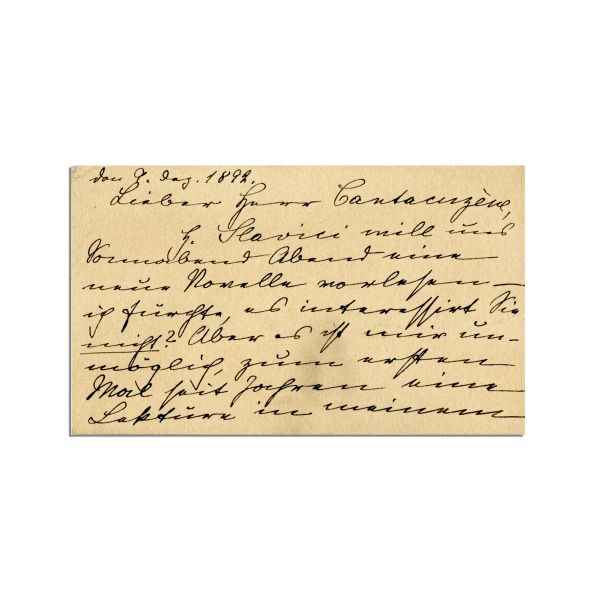 den 7. Dez. 1892.
Lieber Herr Cantacuzène,
H. Slavici will uns
Sonnabend Abend eine
neue Novelle vorlesen –
ich fürchte, es interessirt Sie
nicht? Aber es ist mir un-
möglich, zum ersten
Mal seit Jahren eine
Lektüre in meinem